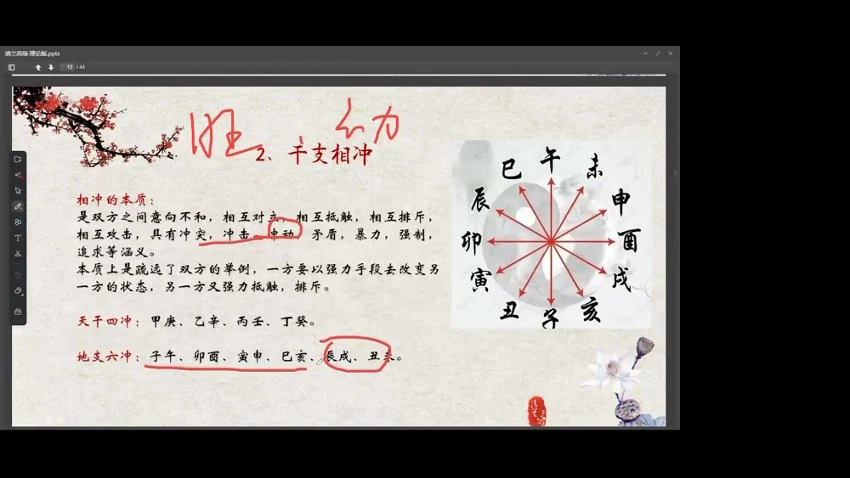 清兰高级-理论版.pptx
13 / 44
旺、 动
2、干支相冲
相冲的本质：
是双方之间意向不和，相互对立，相互抵触，相互排斥，
相互攻击，具有冲突，冲击，冲动，矛盾，暴力，强制，
追求等涵义。
本质上是疏远了双方的举例，一方要以强力手段去改变另
一方的状态，另一方又强力抵触，排斥。
天干四冲：甲庚、乙辛、丙壬、丁癸。
地支六冲：子午、卯酉、寅申、巳亥、辰戌、丑未。
午
未
申
酉
戌
亥
子
丑
寅
卯
辰
巳